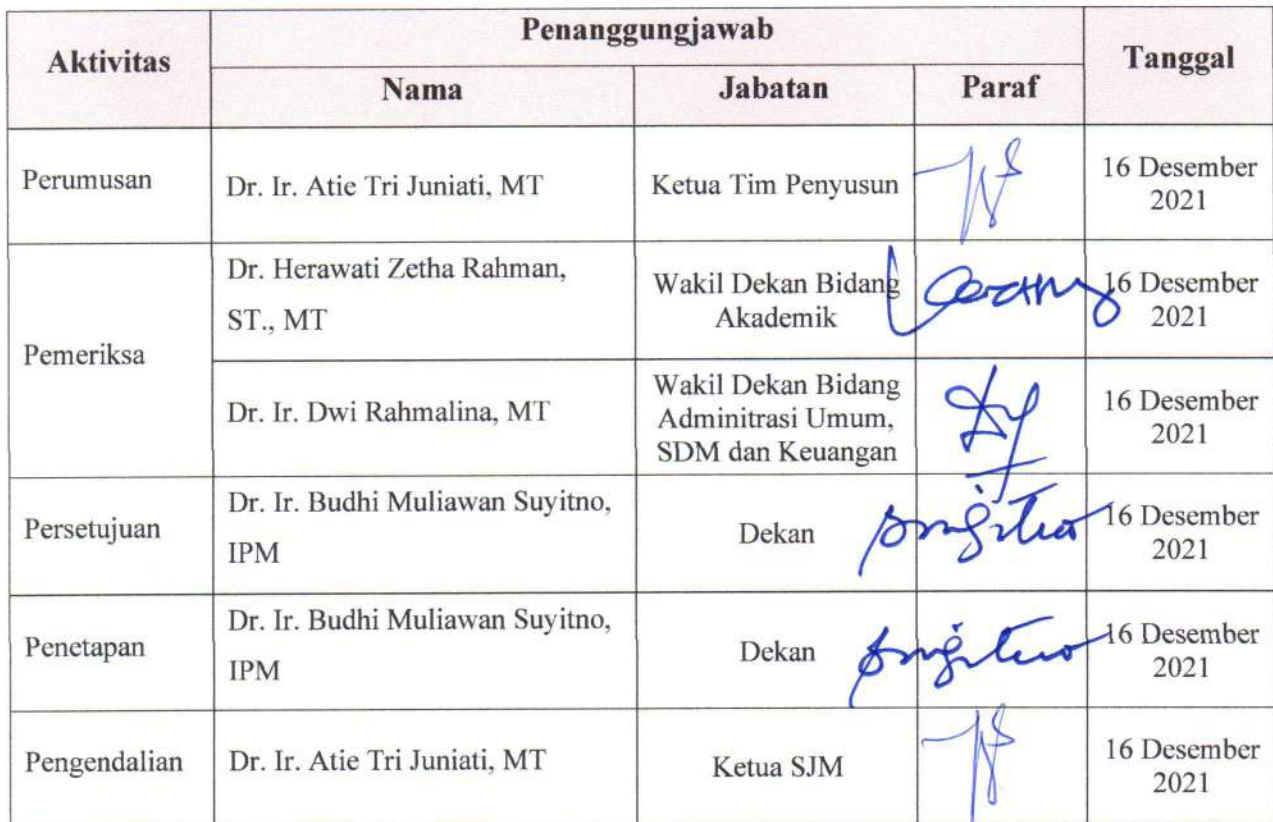 Aktivitas
Penanggungjawab
Tanggal
Nama
Jabatan
Paraf
Perumusan
Dr. Ir. Atie Tri Juniati, MT
Ketua Tim Penyusun
16 Desember
2021
Pemeriksa
Dr. Herawati Zetha Rahman,
ST., MT
Wakil Dekan Bidang
Akademik
16 Desember
2021
Dr. Ir. Dwi Rahmalina, MT
Wakil Dekan Bidang
Adminitrasi Umum,
SDM dan Keuangan
16 Desember
2021
Persetujuan
Dr. Ir. Budhi Muliawan Suyitno,
IPM
Dekan
16 Desember
2021
Penetapan
Dr. Ir. Budhi Muliawan Suyitno,
IPM
Dekan
16 Desember
2021
Pengendalian
Dr. Ir. Atie Tri Juniati, MT
Ketua SJM
16 Desember
2021